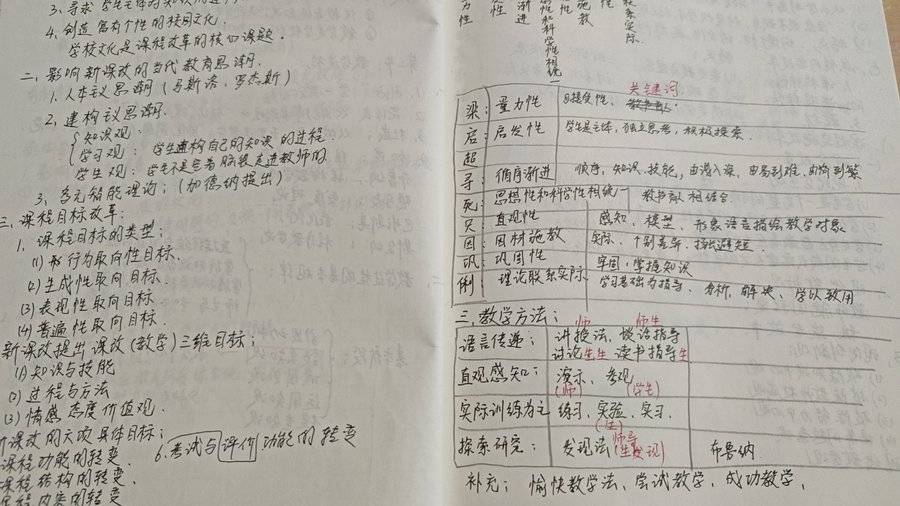 3. 寻求学生主体
4. 创造富有个性的校园文化.
学校文化是课程改革的核心课题.
二、影响新课改的当代教育思潮.
1. 人本主义思潮(马斯洛、罗杰斯)
2. 建构主义思潮
知识观:
学习观: 学生建构自己的知识的过程
学生观: 学生不是空着脑袋走进教师的
3. 多元智能理论: (加德纳提出)
三. 课程目标改革:
1. 课程目标的类型:
(1) 行为取向性目标.
(2) 生成性取向目标.
(3) 表现性取向目标.
(4) 普遍性取向目标.
新课改提出课改(教学)三维目标:
(1) 知识与技能
(2) 过程与方法
(3) 情感 态度 价值观.
课改的六项具体目标:
课程功能的转变.
6. 考试与评价功能的转变
课程结构的转变.
课程内容的转变
力性
渐进
性和科学性相统一
性
施教
性
联系实际.
关键词
梁: 量力性 可接受性,
启: 启发性 学生是主体, 独立思考, 积极探索.
超
寻: 循序渐进 顺序, 知识、技能, 由浅入深, 由易到难, 由简到繁
死: 思想性和科学性相统一 相结合
只: 直观性 感知、模型、形象语言描绘教学对象
因: 因材施教 实际、个别差异、扬长避短.
巩: 巩固性 牢固: 掌握知识
俐: 理论联系实际 学习基础为指导、分析, 解决、学以致用
三、教学方法:
师 师生
语言传递: 讲授法、谈话指导
讨论生生 读书指导生
直观感知: 演示、参观
(师) (学生)
实际训练为主 练习、实验、实习.
(生)
探索研究: 发现法 师导(生发现) 布鲁纳
补充: 愉快教学法、尝试教学、成功教学,